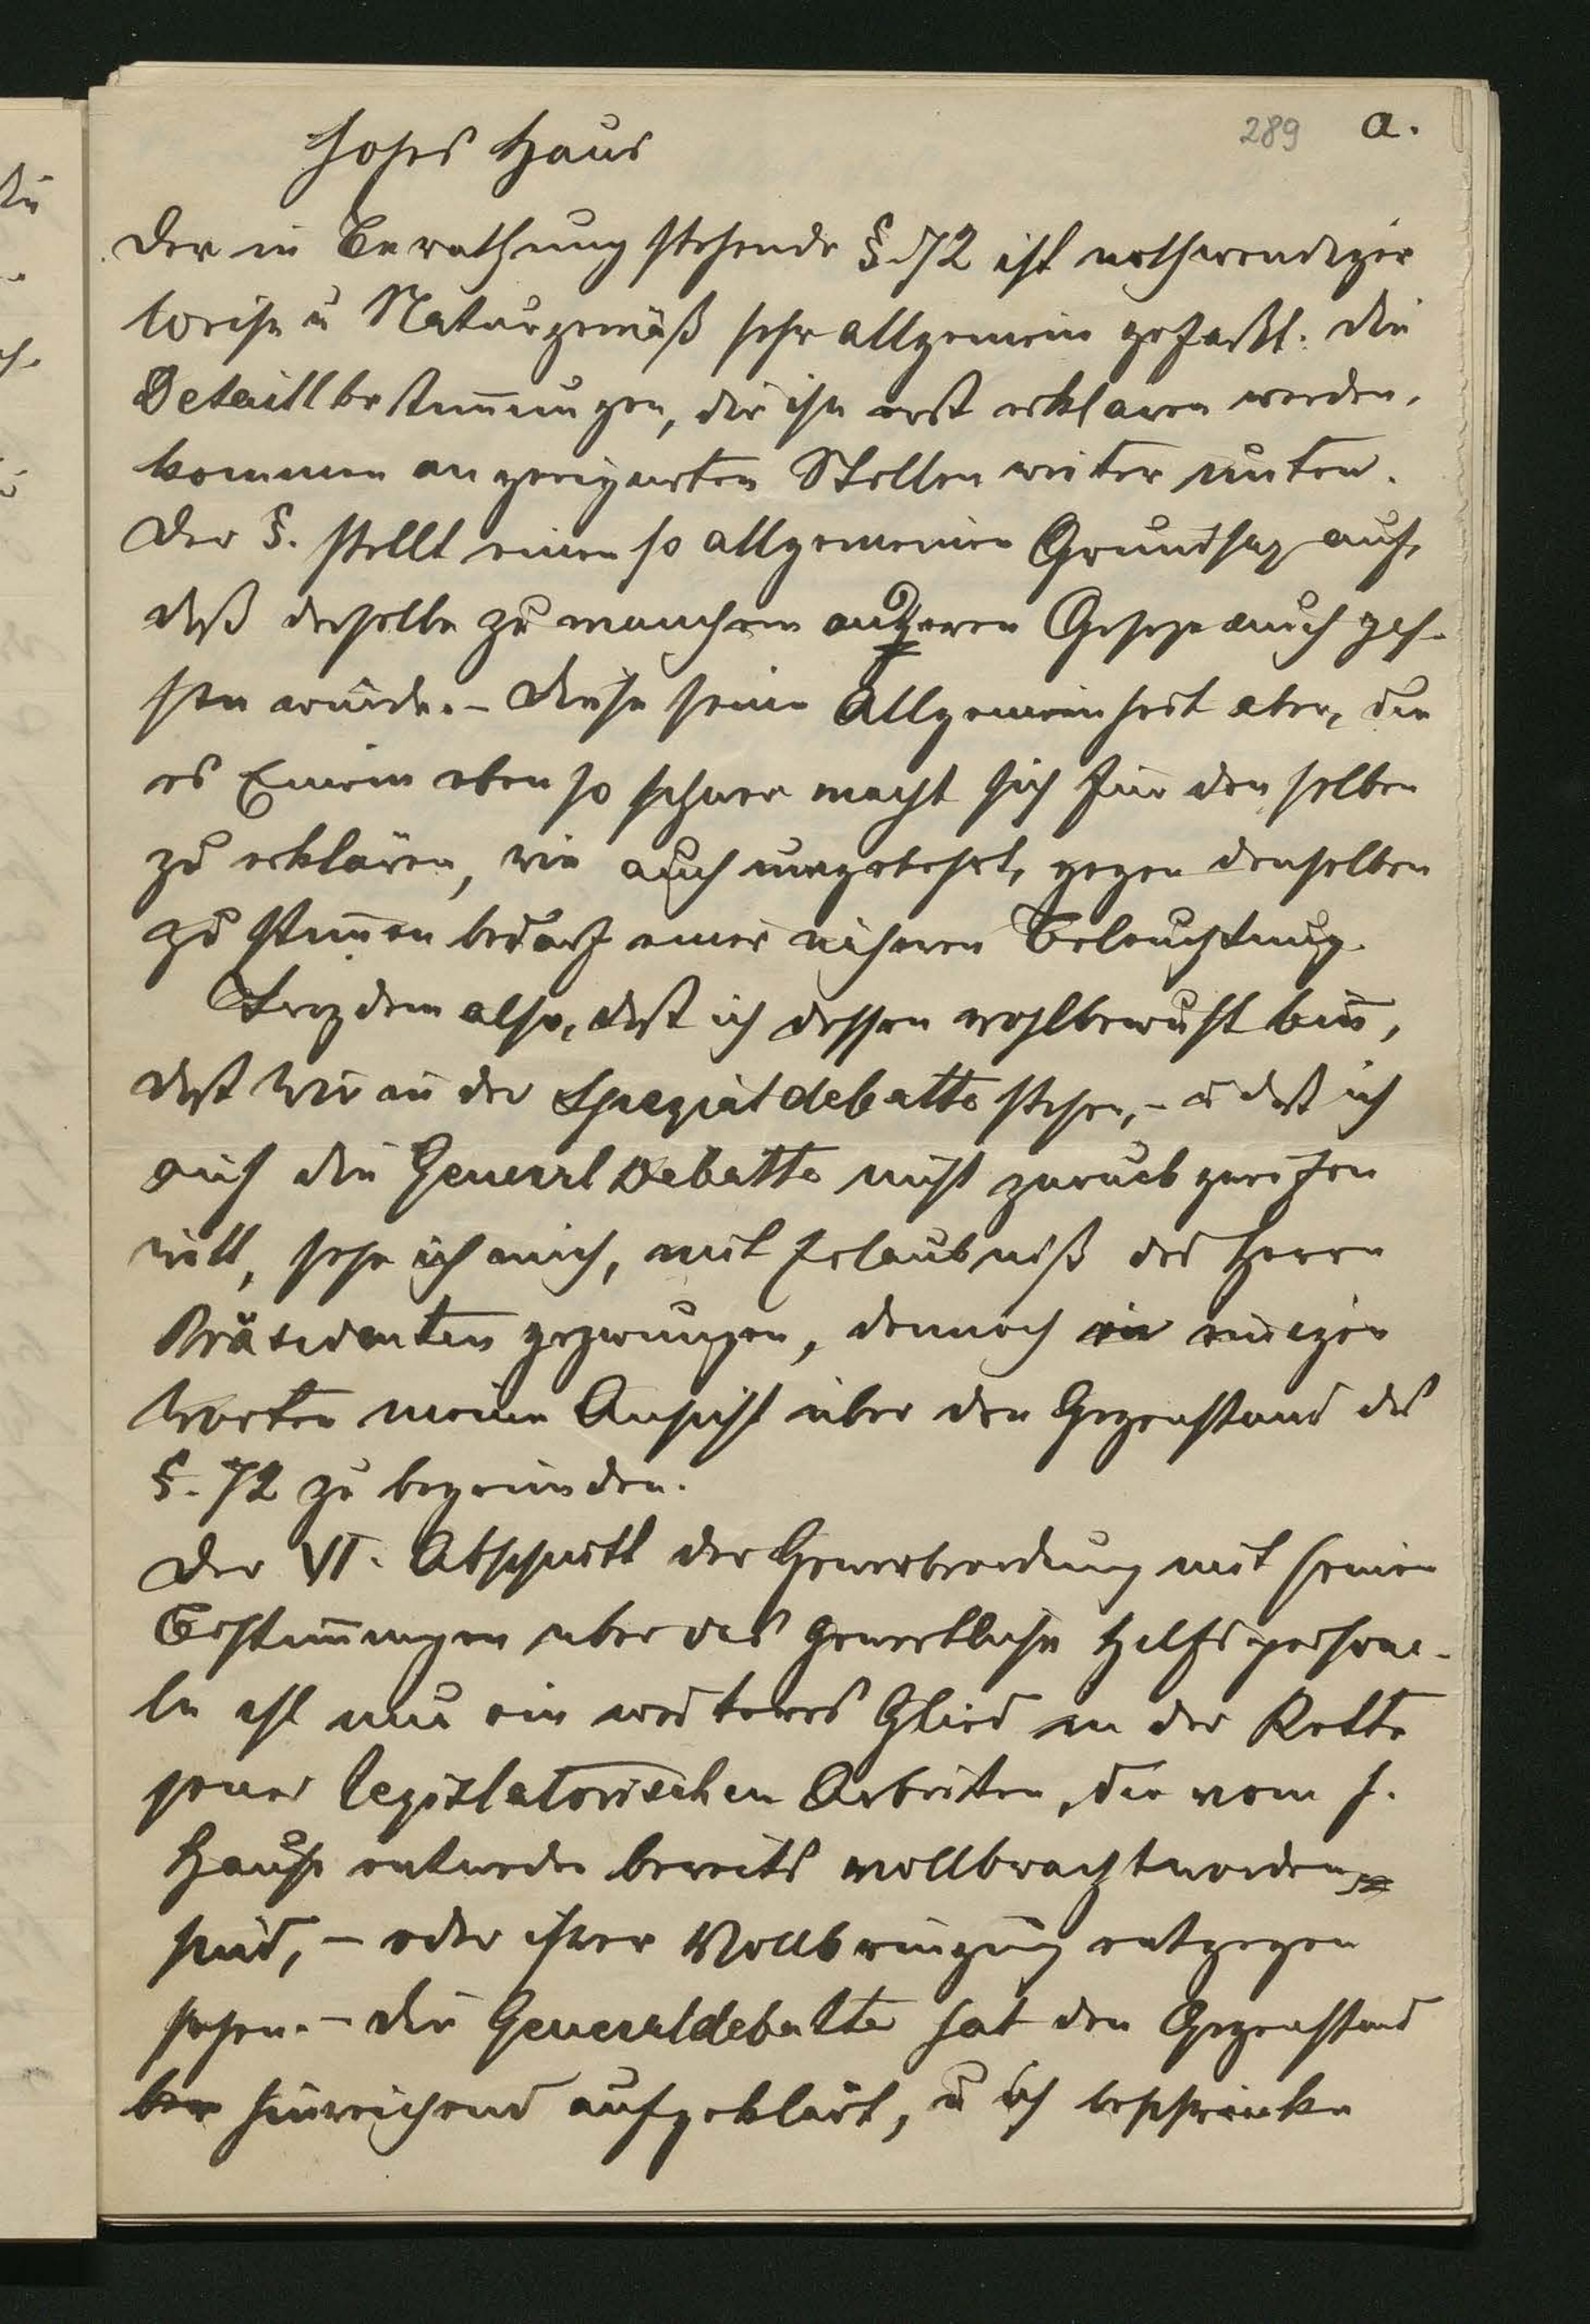 289 a.
Hohes Haus
Der in Berathung stehende §. 72 ist nothwendiger
weise u Naturgemäß sehr allgemein gefasst. Die
Detaillbestim̄ungen, die ihn erst erklären werden,
kommen an geeigneten Stellen weiter unten.
Der §. stellt einen so allgemeinen Grundsaz auf,
daß derselbe zu manchem anderen Geseze auch pas-
sen würde. – Diese seine Allgemeinheit aber, die
es Einem eben so schwer macht sich für denselben
zu erklären, wie auch umgekehrt, gegen denselben
zu stim̄en bedarf einer näheren Beleuchtung.
Trozdem also, dass ich dessen wohlbewusst bin,
dass wir in der Spezialdebatte stehen, – u dass ich
auf die General Debatte nicht zurückgreifen
will, sehe ich mich, mit Erlaubniß des Herrn
Präsidenten gezwungen, dennoch in einigen
Worten meine Ansicht über den Gegenstand des
§. 72 zu begründen.
Der VI. Abschnitt der Gewerbeordnung mit seinen
Bestim̄ungen über das gewerbliche Hilfspersona-
le ist nur ein weiteres Glied in der Kette
jener legislatorischen Arbeiten, die vom h.
Hause entweder bereits vollbracht worden
sind, – oder ihrer Vollbringung entgegen
sehen. – Die Generaldebatte hat den Gegenstand
hinreichend aufgeklärt, u ich beschränke